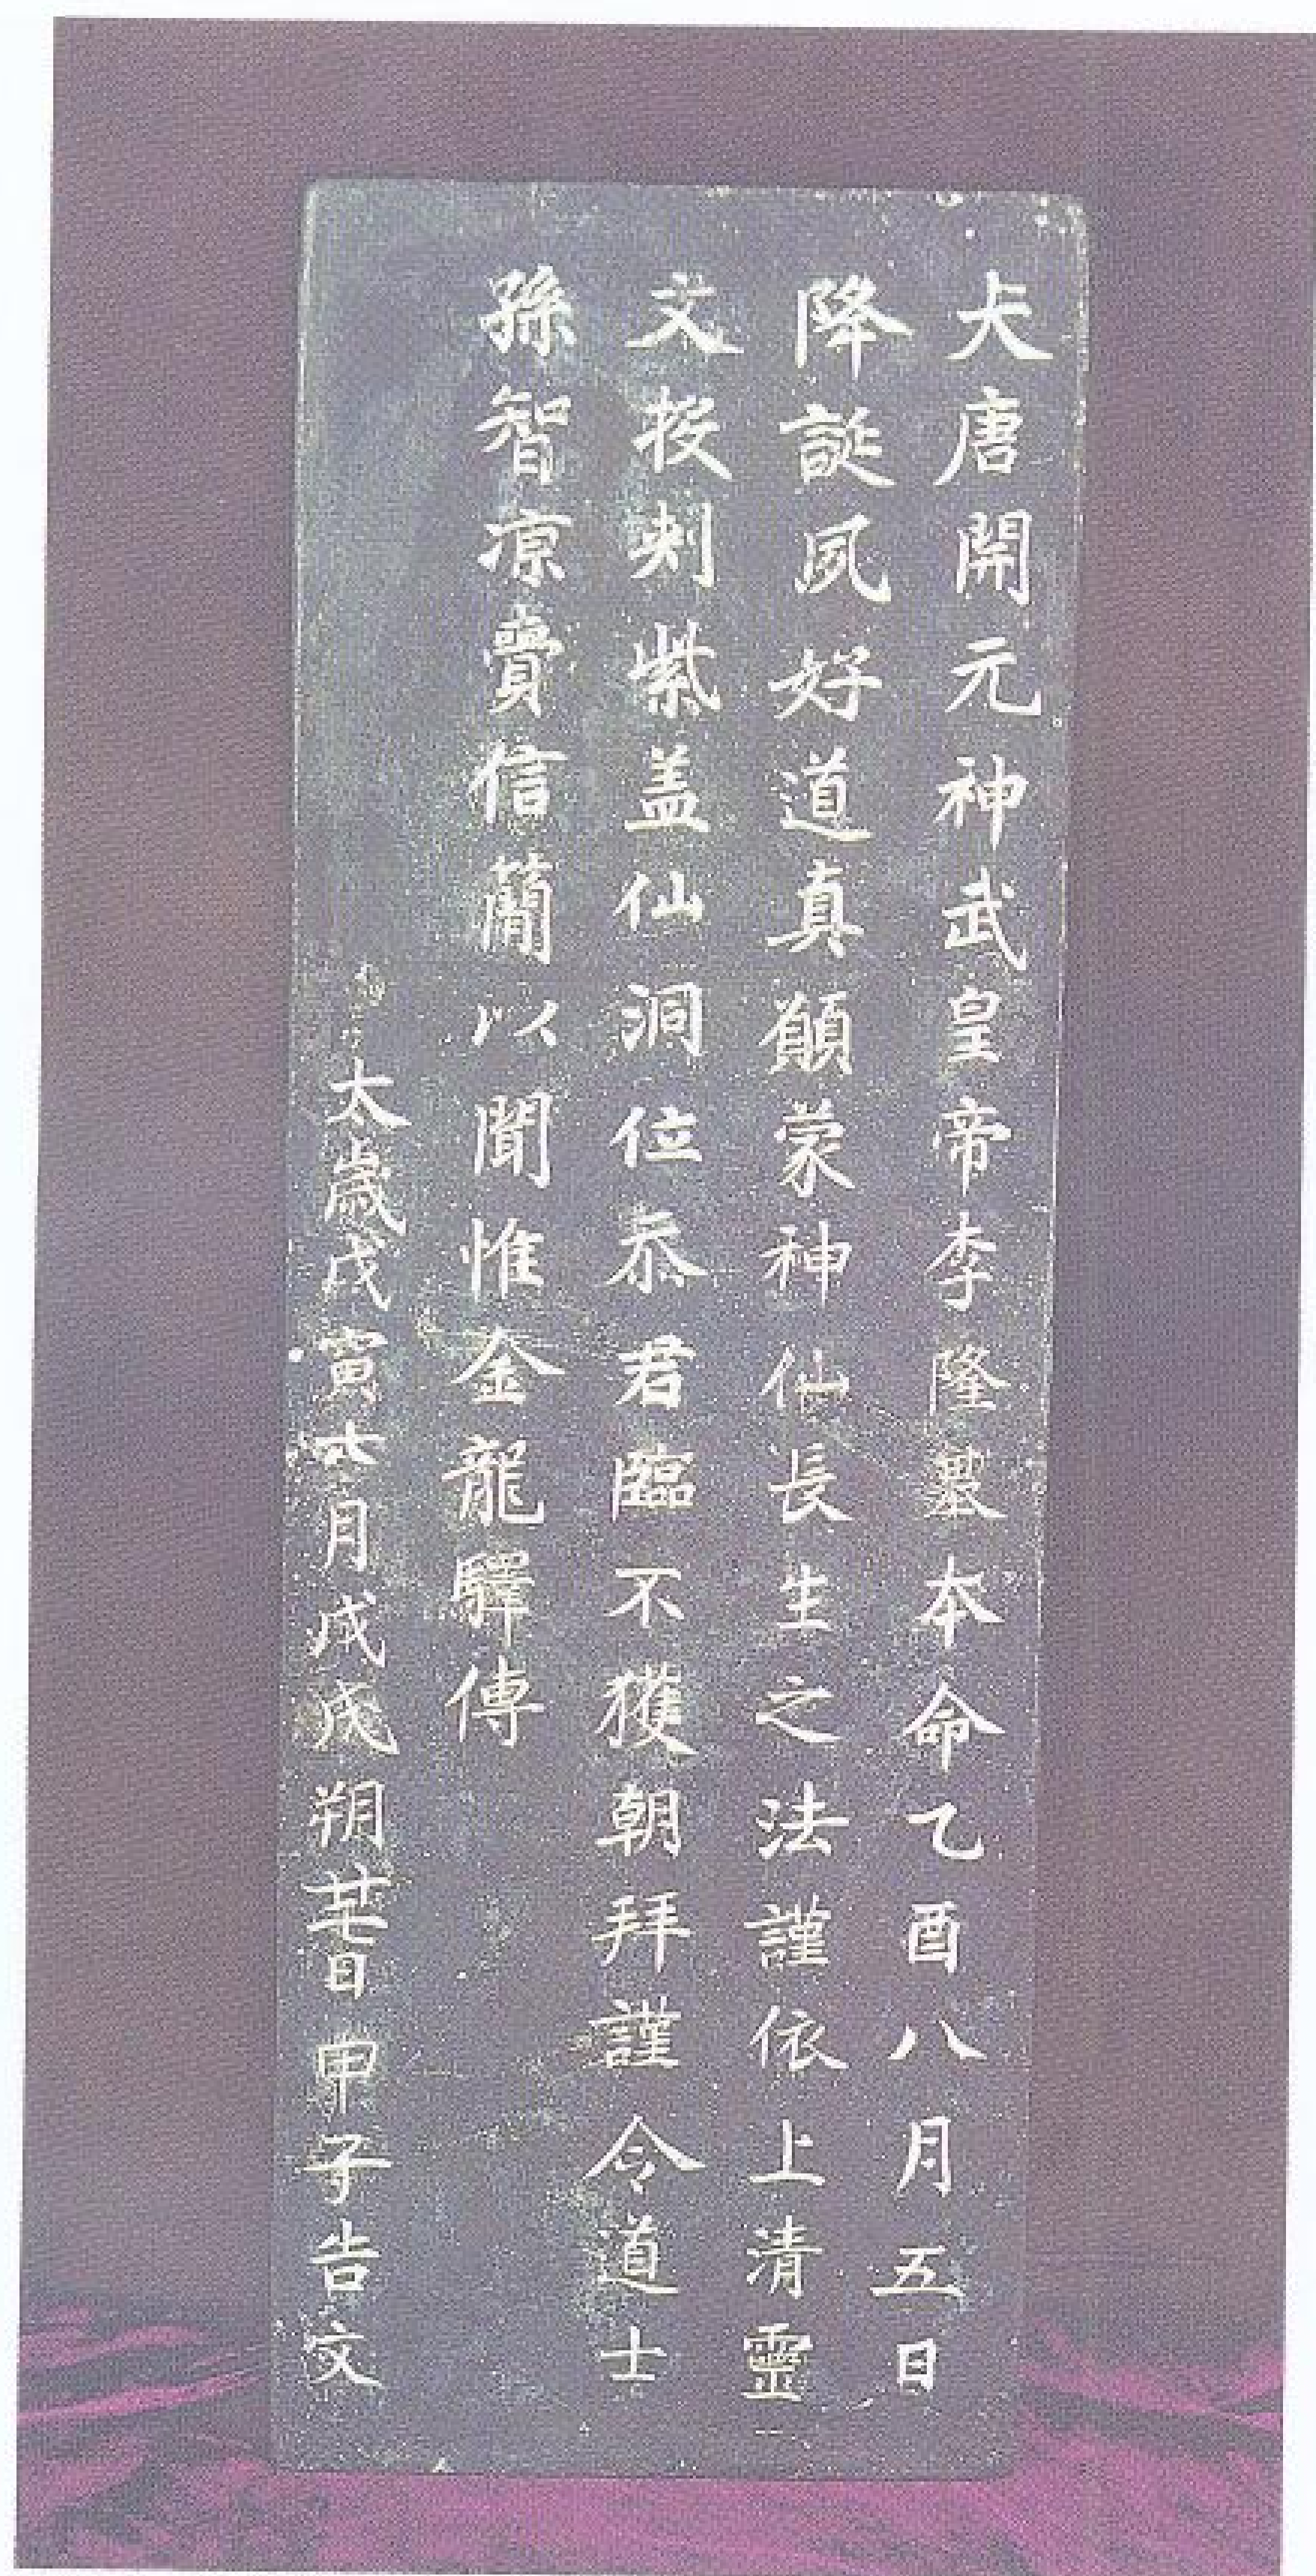 大唐開元神武皇帝李隆基本命乙酉八月五日
降誕夙好道真願蒙神仙長生之法謹依上清靈
文投刺紫盖仙洞位忝君臨不獲朝拜謹令道士
孫智凉賫信簡以聞惟金龍驛傳
太歲戊寅六月戊戌朔廿七日甲子告文